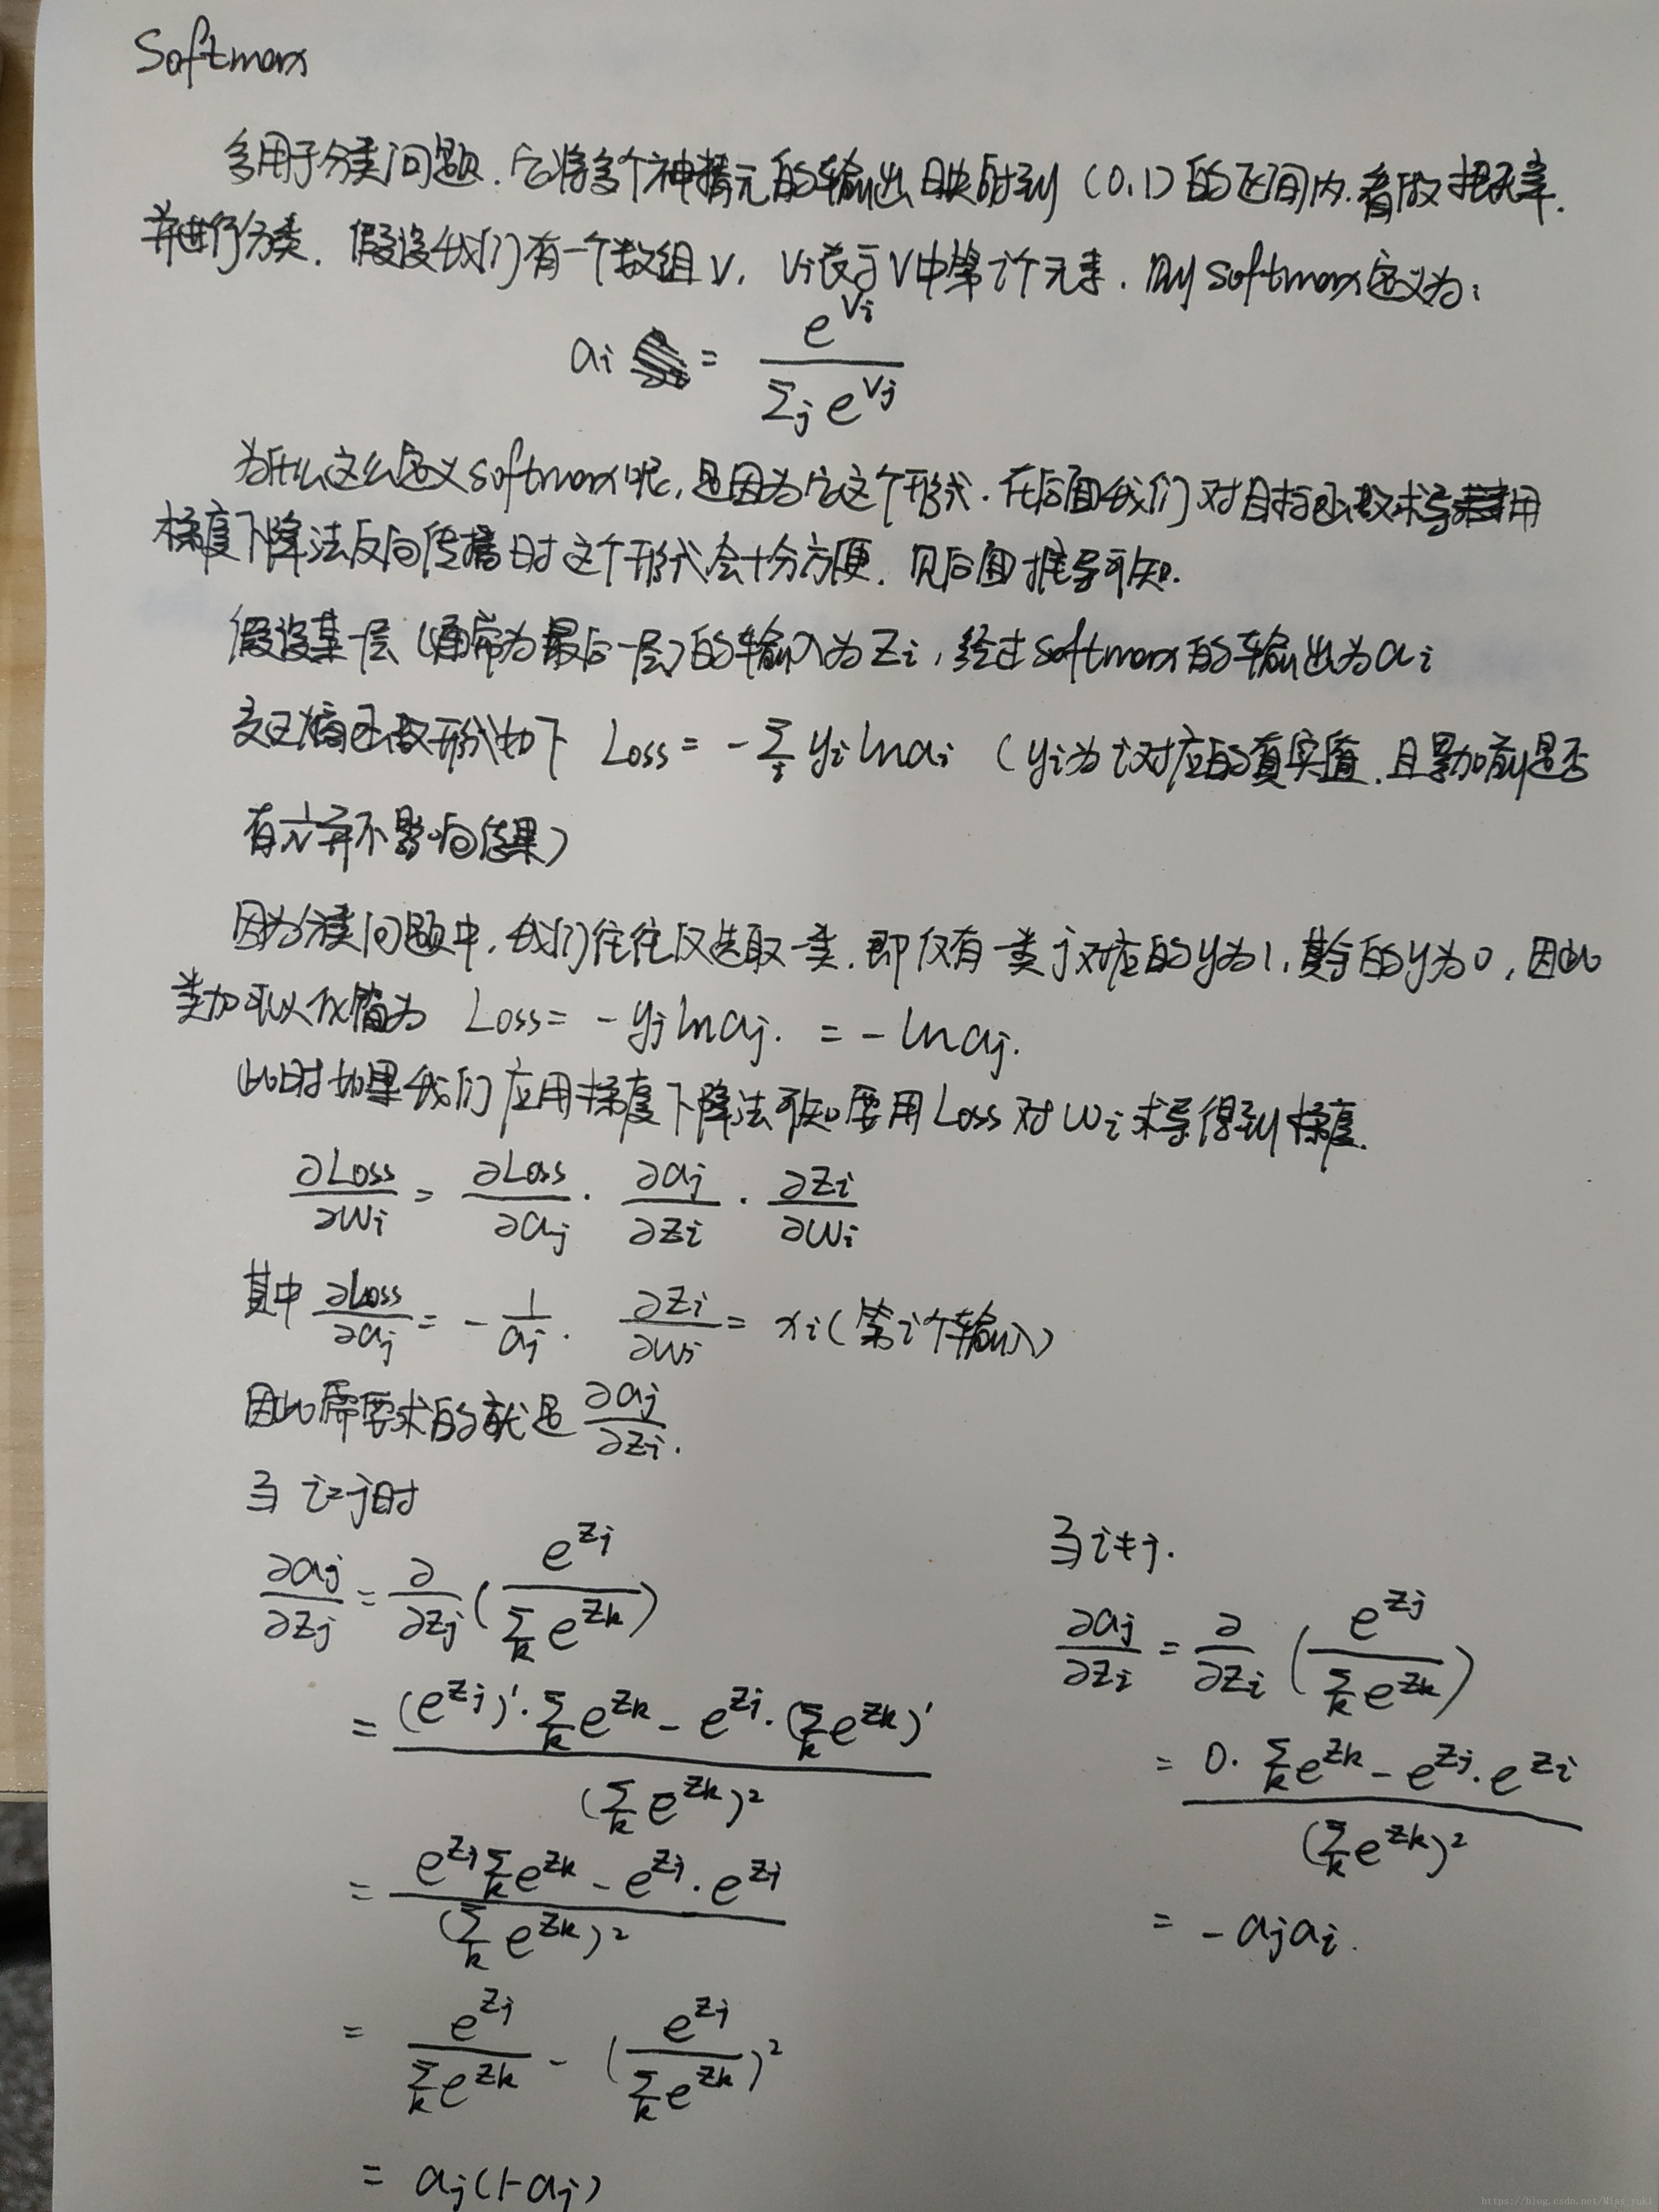 Softmax
多用于分类问题.它将多个神精元的输出映射到(0,1)的区间内.看做概率.
并进行分类.假设我们有一个数组V,Vi表示V中第i个元素.则softmax定义为:
ai = e^{Vi} / Σ_j e^{Vj}
为什么这么定义softmax呢,是因为它这个形式.在后面我们对目标函数求导并用
梯度下降法反向传播时这个形式会十分方便.见后面推导可知.
假设某一层(通常为最后一层)的输入为Zi,经过softmax的输出为ai
交叉熵函数形式如下 Loss = -Σ_i yi ln ai (yi为i对应的真实值.且累加前是否
有1/N并不影响结果)
因为分类问题中,我们往往仅选取一类.即仅有一类j对应的y为1,其余的y为0,因此
累加可以化简为 Loss = -yj ln aj. = -ln aj.
此时如果我们应用梯度下降法可知要用Loss对wi求导得到梯度.
∂Loss/∂wi = ∂Loss/∂aj · ∂aj/∂zi · ∂zi/∂wi
其中 ∂Loss/∂aj = -1/aj. ∂zi/∂wi = xi(第i个输入)
因此需要求的就是 ∂aj/∂zi.
当i=j时
∂aj/∂zj = ∂/∂zj (e^{zj} / Σ_k e^{zk})
= ((e^{zj})'·Σ_k e^{zk} - e^{zj}·(Σ_k e^{zk})') / (Σ_k e^{zk})²
= (e^{zj} Σ_k e^{zk} - e^{zj}·e^{zj}) / (Σ_k e^{zk})²
= e^{zj} / Σ_k e^{zk} - (e^{zj} / Σ_k e^{zk})²
= aj(1-aj)
当i≠j.
∂aj/∂zi = ∂/∂zi (e^{zj} / Σ_k e^{zk})
= (0·Σ_k e^{zk} - e^{zj}·e^{zi}) / (Σ_k e^{zk})²
= -ajai.
https://blog.csdn.net/Miss_yuki